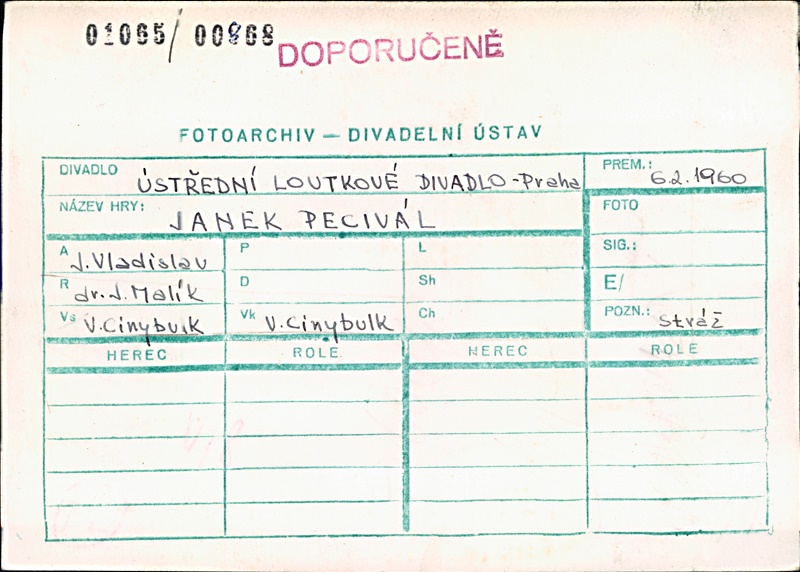 01065/00868
DOPORUČENĚ
FOTOARCHIV — DIVADELNÍ ÚSTAV
DIVADLO ÚSTŘEDNÍ LOUTKOVÉ DIVADLO-Praha PREM.: 6.2.1960
NÁZEV HRY: JANEK PECIVÁL FOTO
A J.Vladislav P L SIG.:
R dr.J.Malík D Sh E/
Vs V.Cinybulk Vk V.Cinybulk Ch POZN.: stráž
HEREC ROLE HEREC ROLE